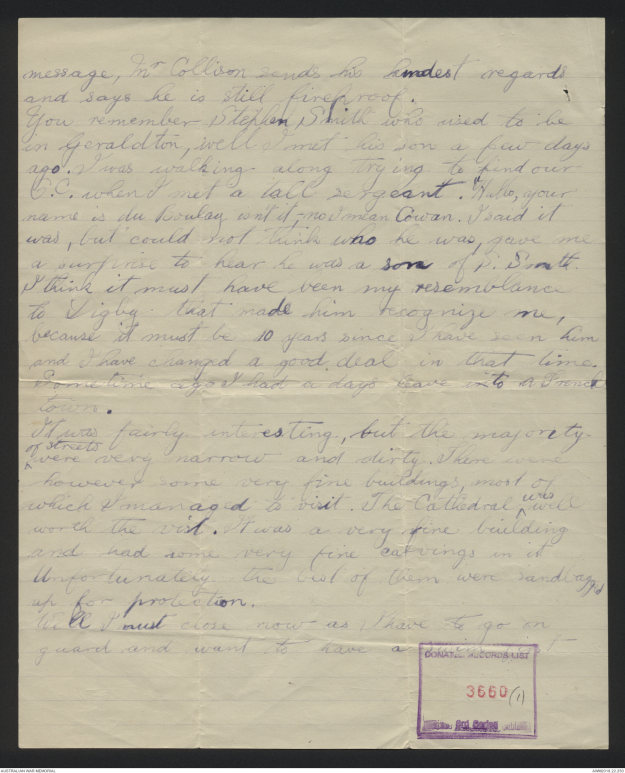 message, Mr Collison sends his kindest regards
and says he is still fireproof.
You remember Stephen Smith who used to be
in Geraldton, well I met his son a few days
ago. I was walking along trying to find our
C.C. when I met a tall sergeant. "Hullo, your
name is du Boulay isnt it, no I mean Cowan. I said it
was, but could not think who he was, gave me
a surprise to hear he was a son of S. Smith.
I think it must have been my resemblance
to Digby that made him recognize me,
because it must be 10 years since I have seen him
and I have changed a good deal in that time.
Sometime ago I had a days leave into a French
town.
It was fairly interesting, but the majority
of streets
were very narrow and dirty. There were
however some very fine buildings, most of
which I managed to visit. The Cathedral was well
worth the visit. It was a very fine building
and had some very fine carvings in it
Unfortunately the best of them were sandbagged
up for protection.
Well I must close now as I have to go on
guard and want to have a first
DONATED RECORDS LIST
3660 (1)
3rd Series
AUSTRALIAN WAR MEMORIAL